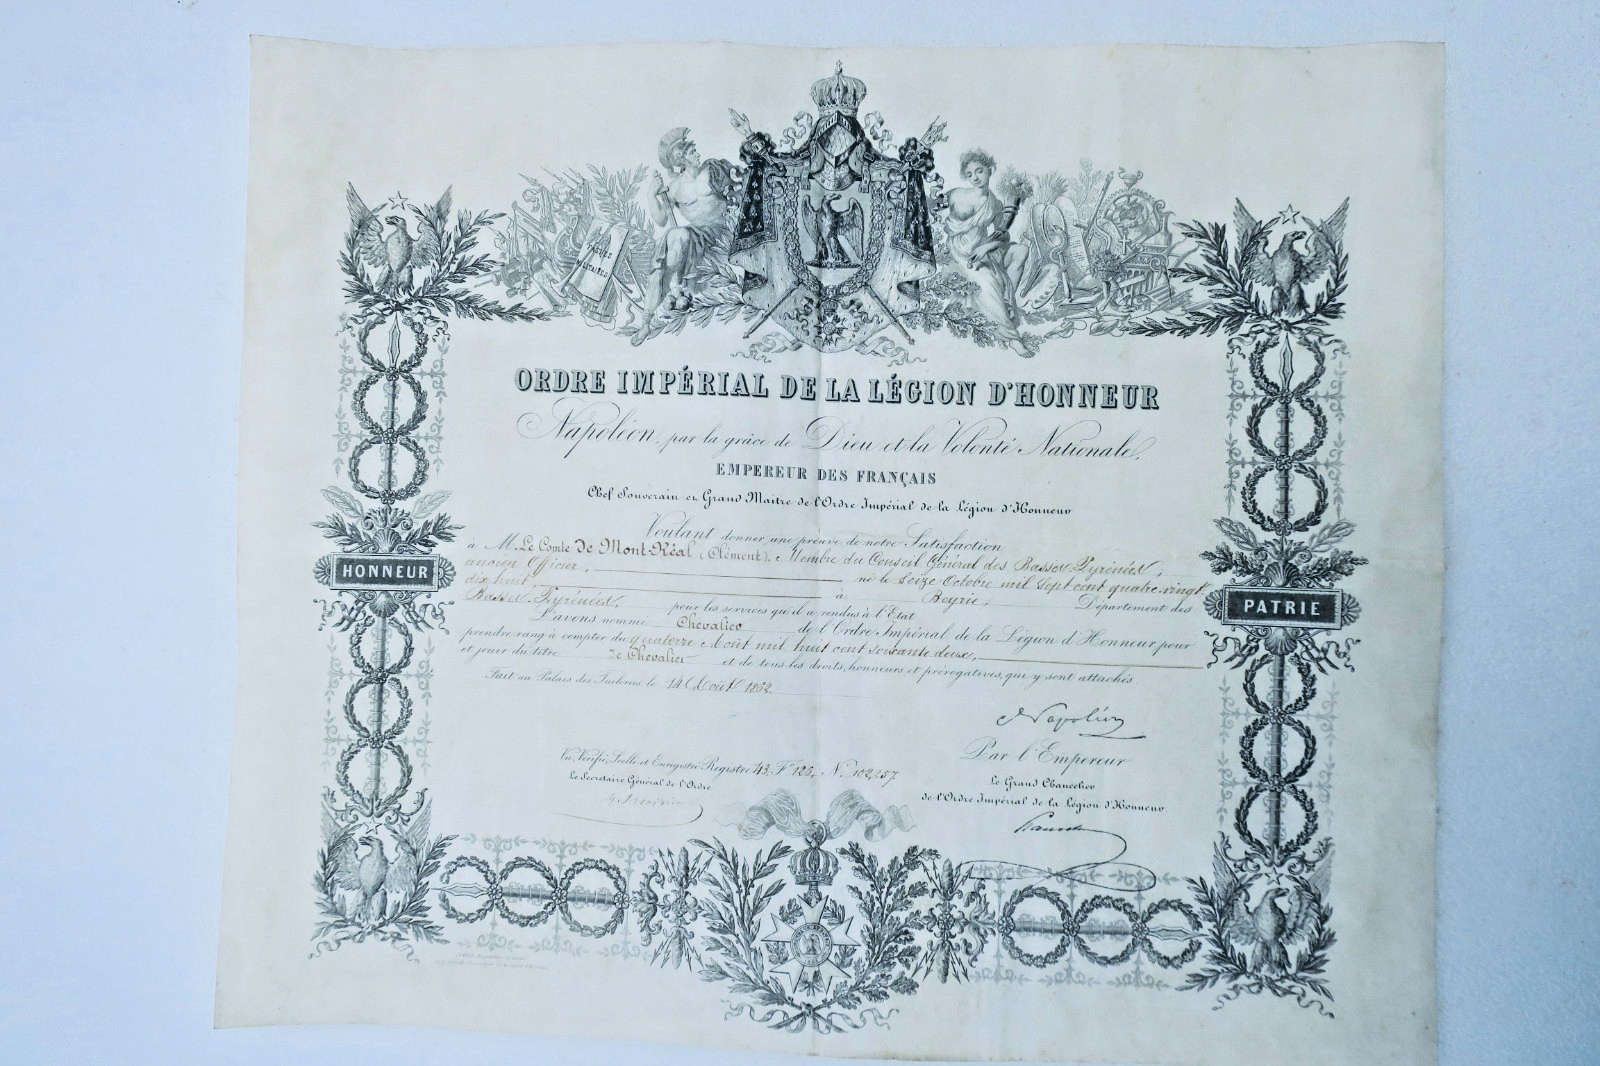 FAITS MILITAIRES
ORDRE IMPÉRIAL DE LA LÉGION D'HONNEUR
Napoléon, par la grâce de Dieu et la Volonté Nationale,
EMPEREUR DES FRANÇAIS
Chef Souverain et Grand Maitre de l'Ordre Impérial de la Légion d'Honneur
Voulant donner une preuve de notre Satisfaction
à M. Le Comte de Mont-Réal (Clément), Membre du Conseil Général des Basses Pyrénées;
ancien Officier, né le Seize Octobre mil sept cent quatre vingt
dix huit à Beyrie, Département des
Basses Pyrénées, pour les services qu'il a rendus à l'Etat
L'avons nommé Chevalier de l'Ordre Impérial de la Légion d'Honneur pour
prendre rang à compter du quatorze Août mil huit cent soixante deux,
et jouir du titre de Chevalier et de tous les droits, honneurs et prérogatives, qui y sont attachés
Fait au Palais des Tuileries le 14 Août 1862
Napoléon
Par l'Empereur
Vu, Vérifié, Scellé et Enregistré Registre 43, F° 126, N° 102,257
Le Secrétaire Général de l'Ordre
Le Grand Chancelier
de l'Ordre Impérial de la Légion d'Honneur
HONNEUR
PATRIE